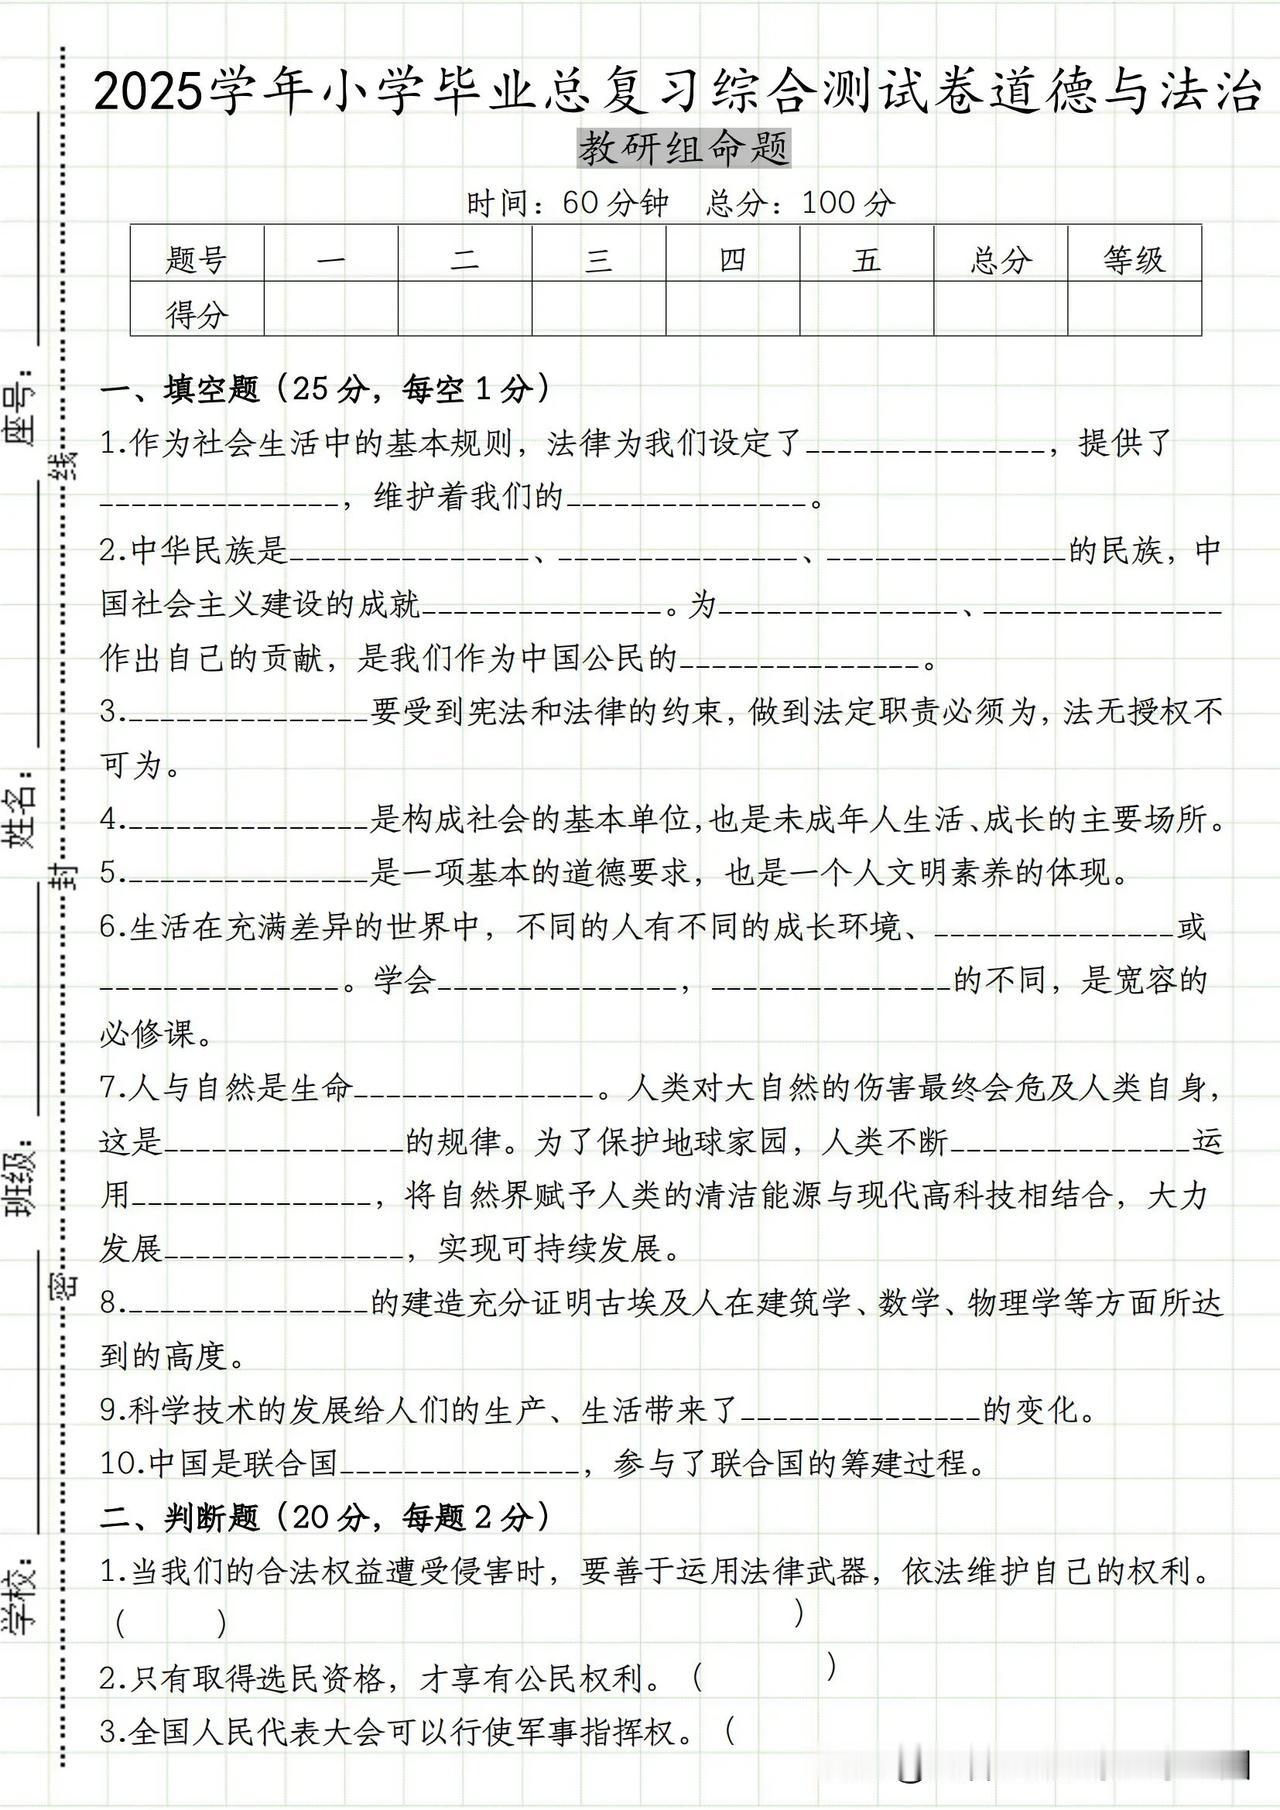 2025学年小学毕业总复习综合测试卷道德与法治
教研组命题
时间：60分钟 总分：100分
题号 一 二 三 四 五 总分 等级
得分
一、填空题（25分，每空1分）
1.作为社会生活中的基本规则，法律为我们设定了_______________，提供了
_______________，维护着我们的_______________。
2.中华民族是_______________、_______________、_______________的民族，中
国社会主义建设的成就_______________。为_______________、_______________
作出自己的贡献，是我们作为中国公民的_______________。
3._______________要受到宪法和法律的约束，做到法定职责必须为，法无授权不
可为。
4._______________是构成社会的基本单位，也是未成年人生活、成长的主要场所。
5._______________是一项基本的道德要求，也是一个人文明素养的体现。
6.生活在充满差异的世界中，不同的人有不同的成长环境、_______________或
_______________。学会_______________，_______________的不同，是宽容的
必修课。
7.人与自然是生命_______________。人类对大自然的伤害最终会危及人类自身，
这是_______________的规律。为了保护地球家园，人类不断_______________运
用_______________，将自然界赋予人类的清洁能源与现代高科技相结合，大力
发展_______________，实现可持续发展。
8._______________的建造充分证明古埃及人在建筑学、数学、物理学等方面所达
到的高度。
9.科学技术的发展给人们的生产、生活带来了_______________的变化。
10.中国是联合国_______________，参与了联合国的筹建过程。
二、判断题（20分，每题2分）
1.当我们的合法权益遭受侵害时，要善于运用法律武器，依法维护自己的权利。
（ ） ）
2.只有取得选民资格，才享有公民权利。（ ）
3.全国人民代表大会可以行使军事指挥权。（
座号：
姓名：
班级：
学校：
线
封
密